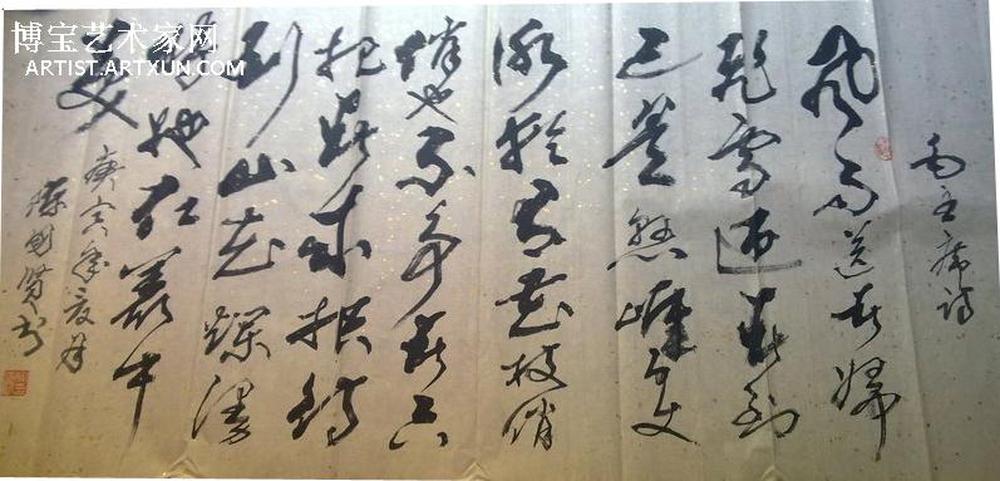 博宝艺术家网
ARTIST.ARTXUN.COM
毛主席诗
风雨送春歸
飛雪迎春到
已是懸崖百丈
冰猶有花枝俏
俏也不争春只
把春来报待
到山花爛漫
时她在叢中
笑
庚寅年夏月
陈國贤书